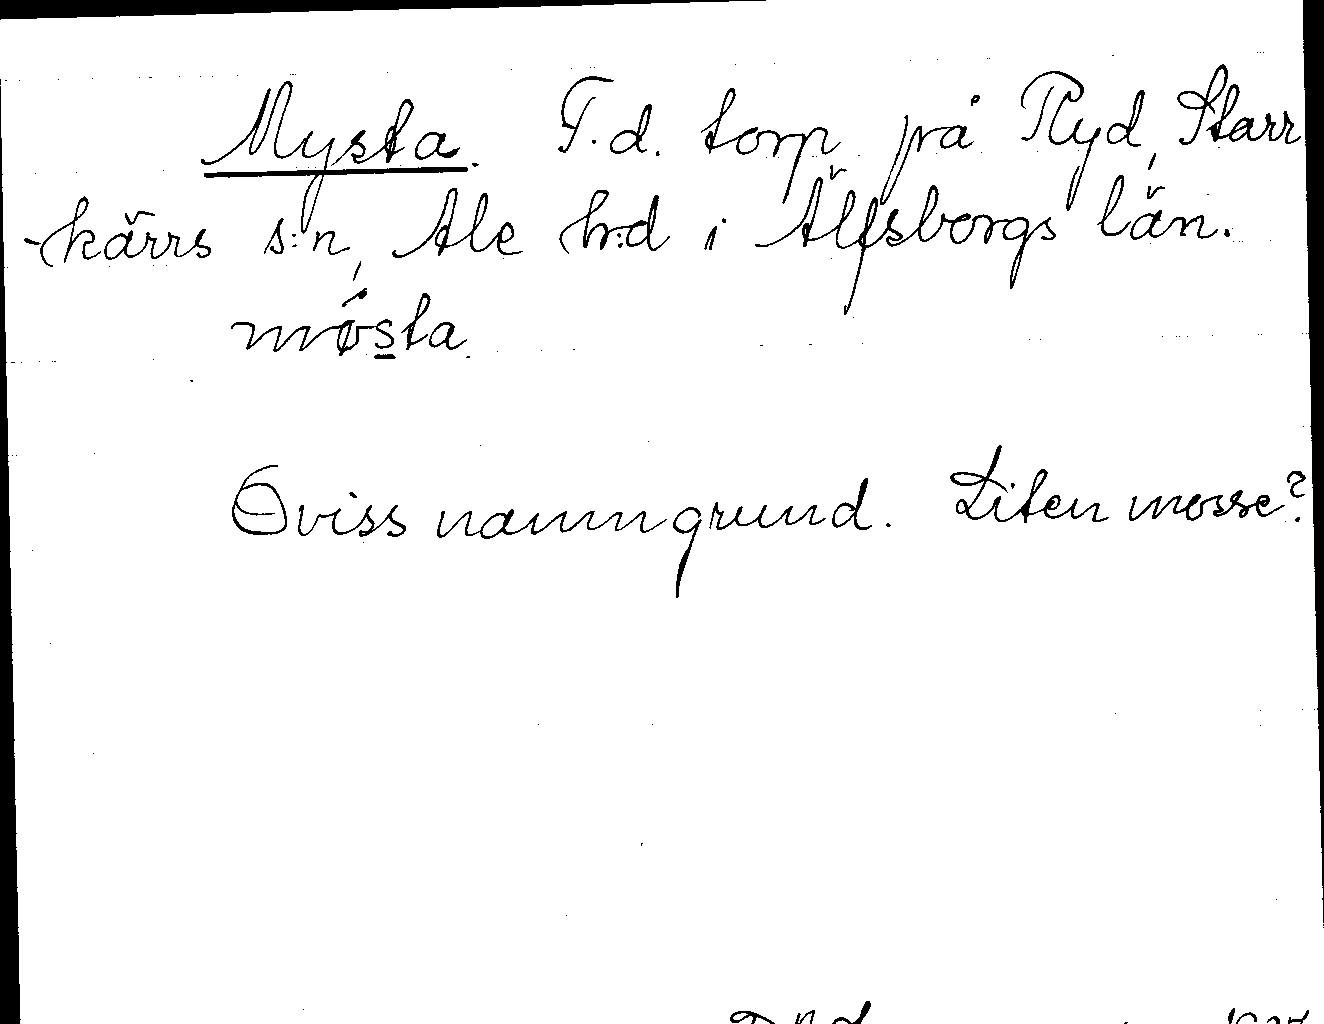 Mysta. F.d. torp på Ryd, Starr
-kärrs s:n, Ale h:d i Älfsborgs län.
mǿsta.
Oviss namngrund. Liten mosse?